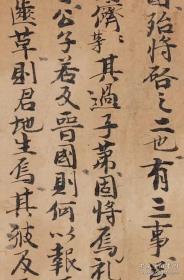 殆將啓之二也有三事
儕等其過子苐固將焉礼
公子若反晉國則何以報
齒革則君地生焉其波及